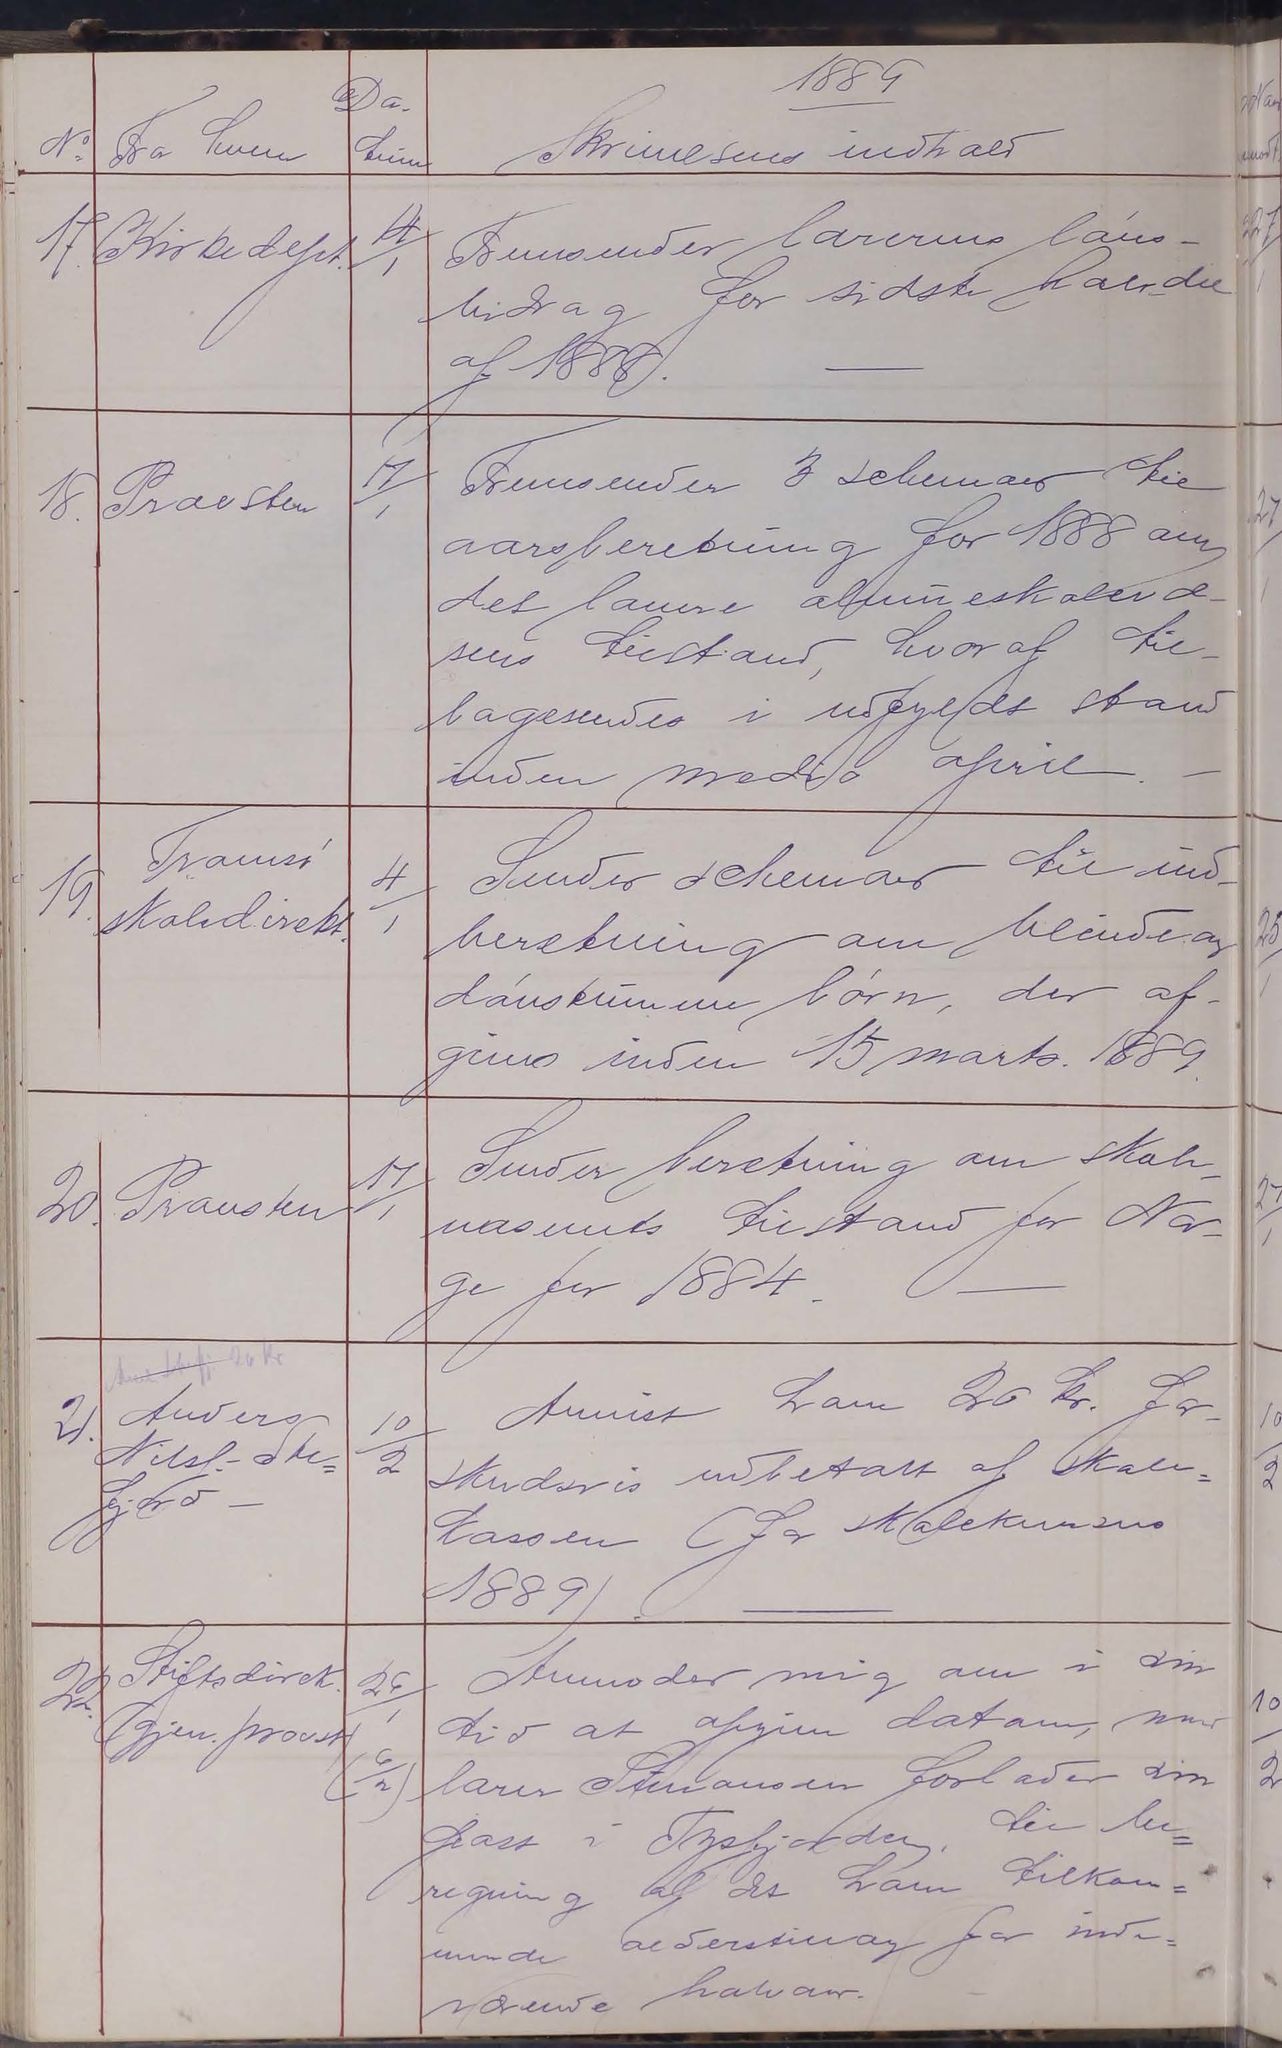 1889
No. Fra hvem Datum Skrivelsens indhold
17. Kirkedept. 14/1 Fremsender lærernes løns-
bidrag for sidste halvdel
af 1888. —
18. Provsten 17/1 Fremsender 3 schemaer til
aarsberetning for 1888 om
det lavere almueskolevæ-
sens tilstand, hvoraf til-
bagesendes i udfyldt stand
inden medio april. —
19. Tromsø
skoledirekt. 4/1 Sender schemaer til ind-
beretning om blinde og
døvstumme børn, der af-
gives inden 15 marts. 1889.
20. Provsten 17/1 Sender beretning om skole-
væsenets tilstand for Nor-
ge for 1884. —
26 kr
21. Anders
Nilss.
fjord — 10/2 Anvist ham 26 kr. for-
skudsvis udbetalt af skole-
kassen (for skolekursus
1889). —
22. Stiftsdirek.
(gjen. provst) 26/1
(6/2) Anmoder mig om i sin
tid at opgive datoen, naar
lærer Simonsen forlader sin
post i Tysfjorden, til be-
regning af det ham tilkom-
mende alderstillæg for inde-
værende halvaar.
27/1
27/1
25/1
27/1
10/2
10/2